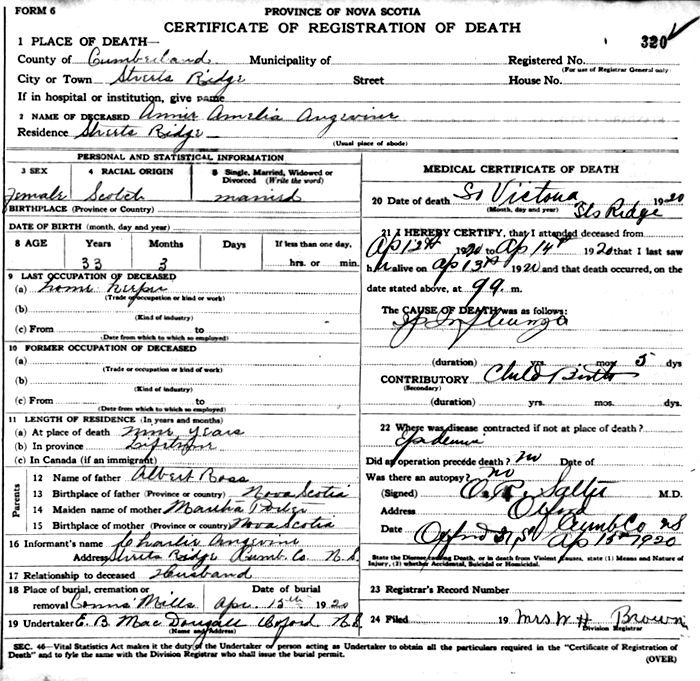 FORM 6
PROVINCE OF NOVA SCOTIA
CERTIFICATE OF REGISTRATION OF DEATH
320
1 PLACE OF DEATH—
County of Cumberland Municipality of Registered No.
(For use of Registrar General only)
City or Town Streets Ridge Street House No.
If in hospital or institution, give name
2 NAME OF DECEASED Annie Amelia Angevine
Residence Streets Ridge
(Usual place of abode)
PERSONAL AND STATISTICAL INFORMATION
3 SEX 4 RACIAL ORIGIN 5 Single, Married, Widowed or Divorced (Write the word)
Female Scotch married
BIRTHPLACE (Province or Country)
DATE OF BIRTH (month, day and year)
8 AGE Years Months Days If less than one day,
33 3 hrs. or min.
9 LAST OCCUPATION OF DECEASED
(a) home keeper
(Trade or occupation or kind or work)
(b)
(Kind of industry)
(c) From to
(Date from which to which so employed)
10 FORMER OCCUPATION OF DECEASED
(a)
(Trade or occupation or kind of work)
(b)
(Kind of industry)
(c) From to
(Date from which to which so employed)
11 LENGTH OF RESIDENCE (In years and months)
(a) At place of death nine years
(b) In province Lifetime
(c) In Canada (if an immigrant)
Parents
12 Name of father Albert Ross
13 Birthplace of father (Province or country) Nova Scotia
14 Maiden name of mother Martha
15 Birthplace of mother (Province or country) Nova Scotia
16 Informant's name Charlie Angevine
Address Streets Ridge Cumb. Co. N.S.
17 Relationship to deceased Husband
18 Place of burial, cremation or Date of burial
removal Conns Mills Apr. 15th 1920
19 Undertaker E. B. MacDougall Oxford N.S.
(Name and Address)
MEDICAL CERTIFICATE OF DEATH
20 Date of death So Victoria 1920
(Month, day and year) Sts Ridge
21 I HEREBY CERTIFY, that I attended deceased from
Ap 13th 1920 to Ap 14th 1920 that I last saw
h alive on Ap 13th 1920 and that death occurred, on the
date stated above, at 99 m.
The CAUSE OF DEATH was as follows:
Influenza
(duration) yrs. mos. 5 dys
CONTRIBUTORY Child Birth
(Secondary)
(duration) yrs. mos. dys.
22 Where was disease contracted if not at place of death?
Epidemic
Did an operation precede death? no Date of
Was there an autopsy? no
(Signed) M.D.
Address Oxford
Cumb Co NS
Date Oxford N.S. Ap 15th 1920
State the Disease causing Death, or in death from Violent Causes, state (1) Means and Nature of
Injury, (2) whether Accidental, Suicidal or Homicidal.
23 Registrar's Record Number
24 Filed 19 Mrs W H Brown
Division Registrar
SEC. 46—Vital Statistics Act makes it the duty of the Undertaker or person acting as Undertaker to obtain all the particulars required in the "Certificate of Registration of
Death" and to fyle the same with the Division Registrar who shall issue the burial permit.
(OVER)